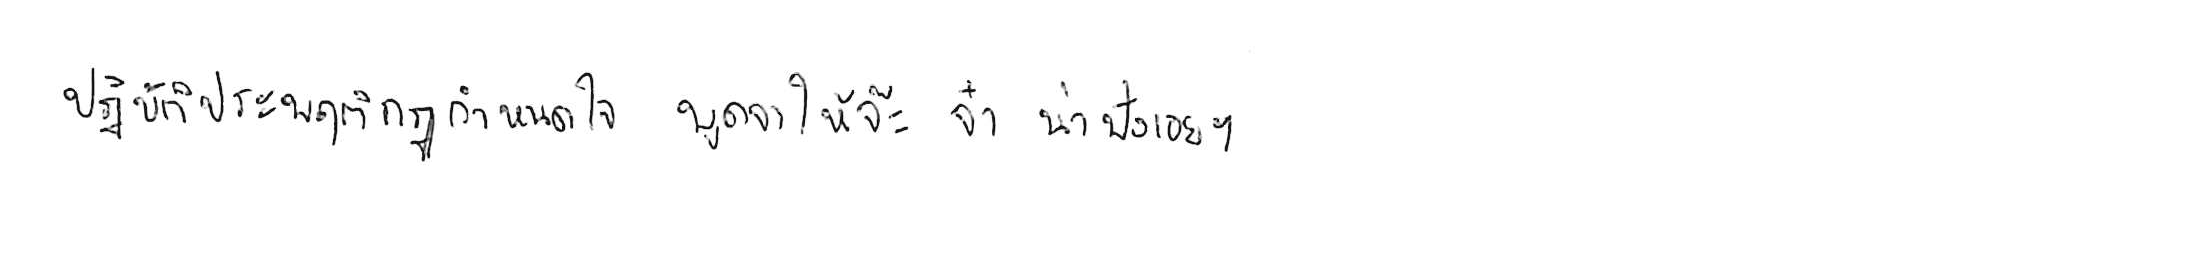 ปฏิบัติประพฤติกฎกำหนดใจ พูดจาให้จ๊ะ จ๋า น่าฟังเอยฯ